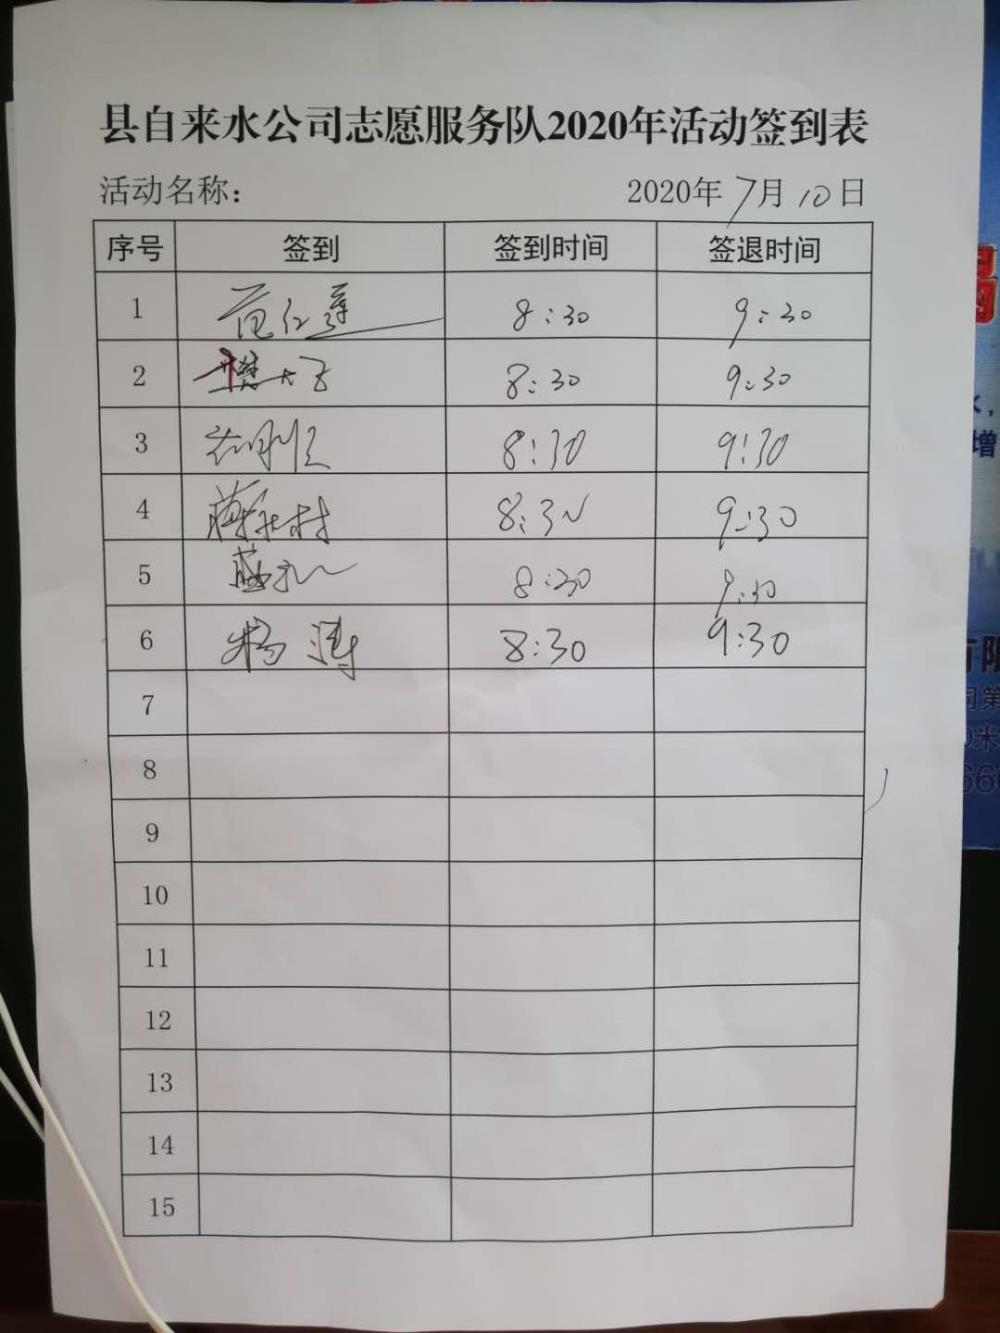 县自来水公司志愿服务队2020年活动签到表
活动名称: 2020年7月10日
序号 签到 签到时间 签退时间
1 8:30 9:30
2 樊 8:30 9:30
3 8:30 9:30
4 8:30 9:30
5 8:30 9:30
6 杨涛 8:30 9:30
7
8
9
10
11
12
13
14
15
增
有限
司第